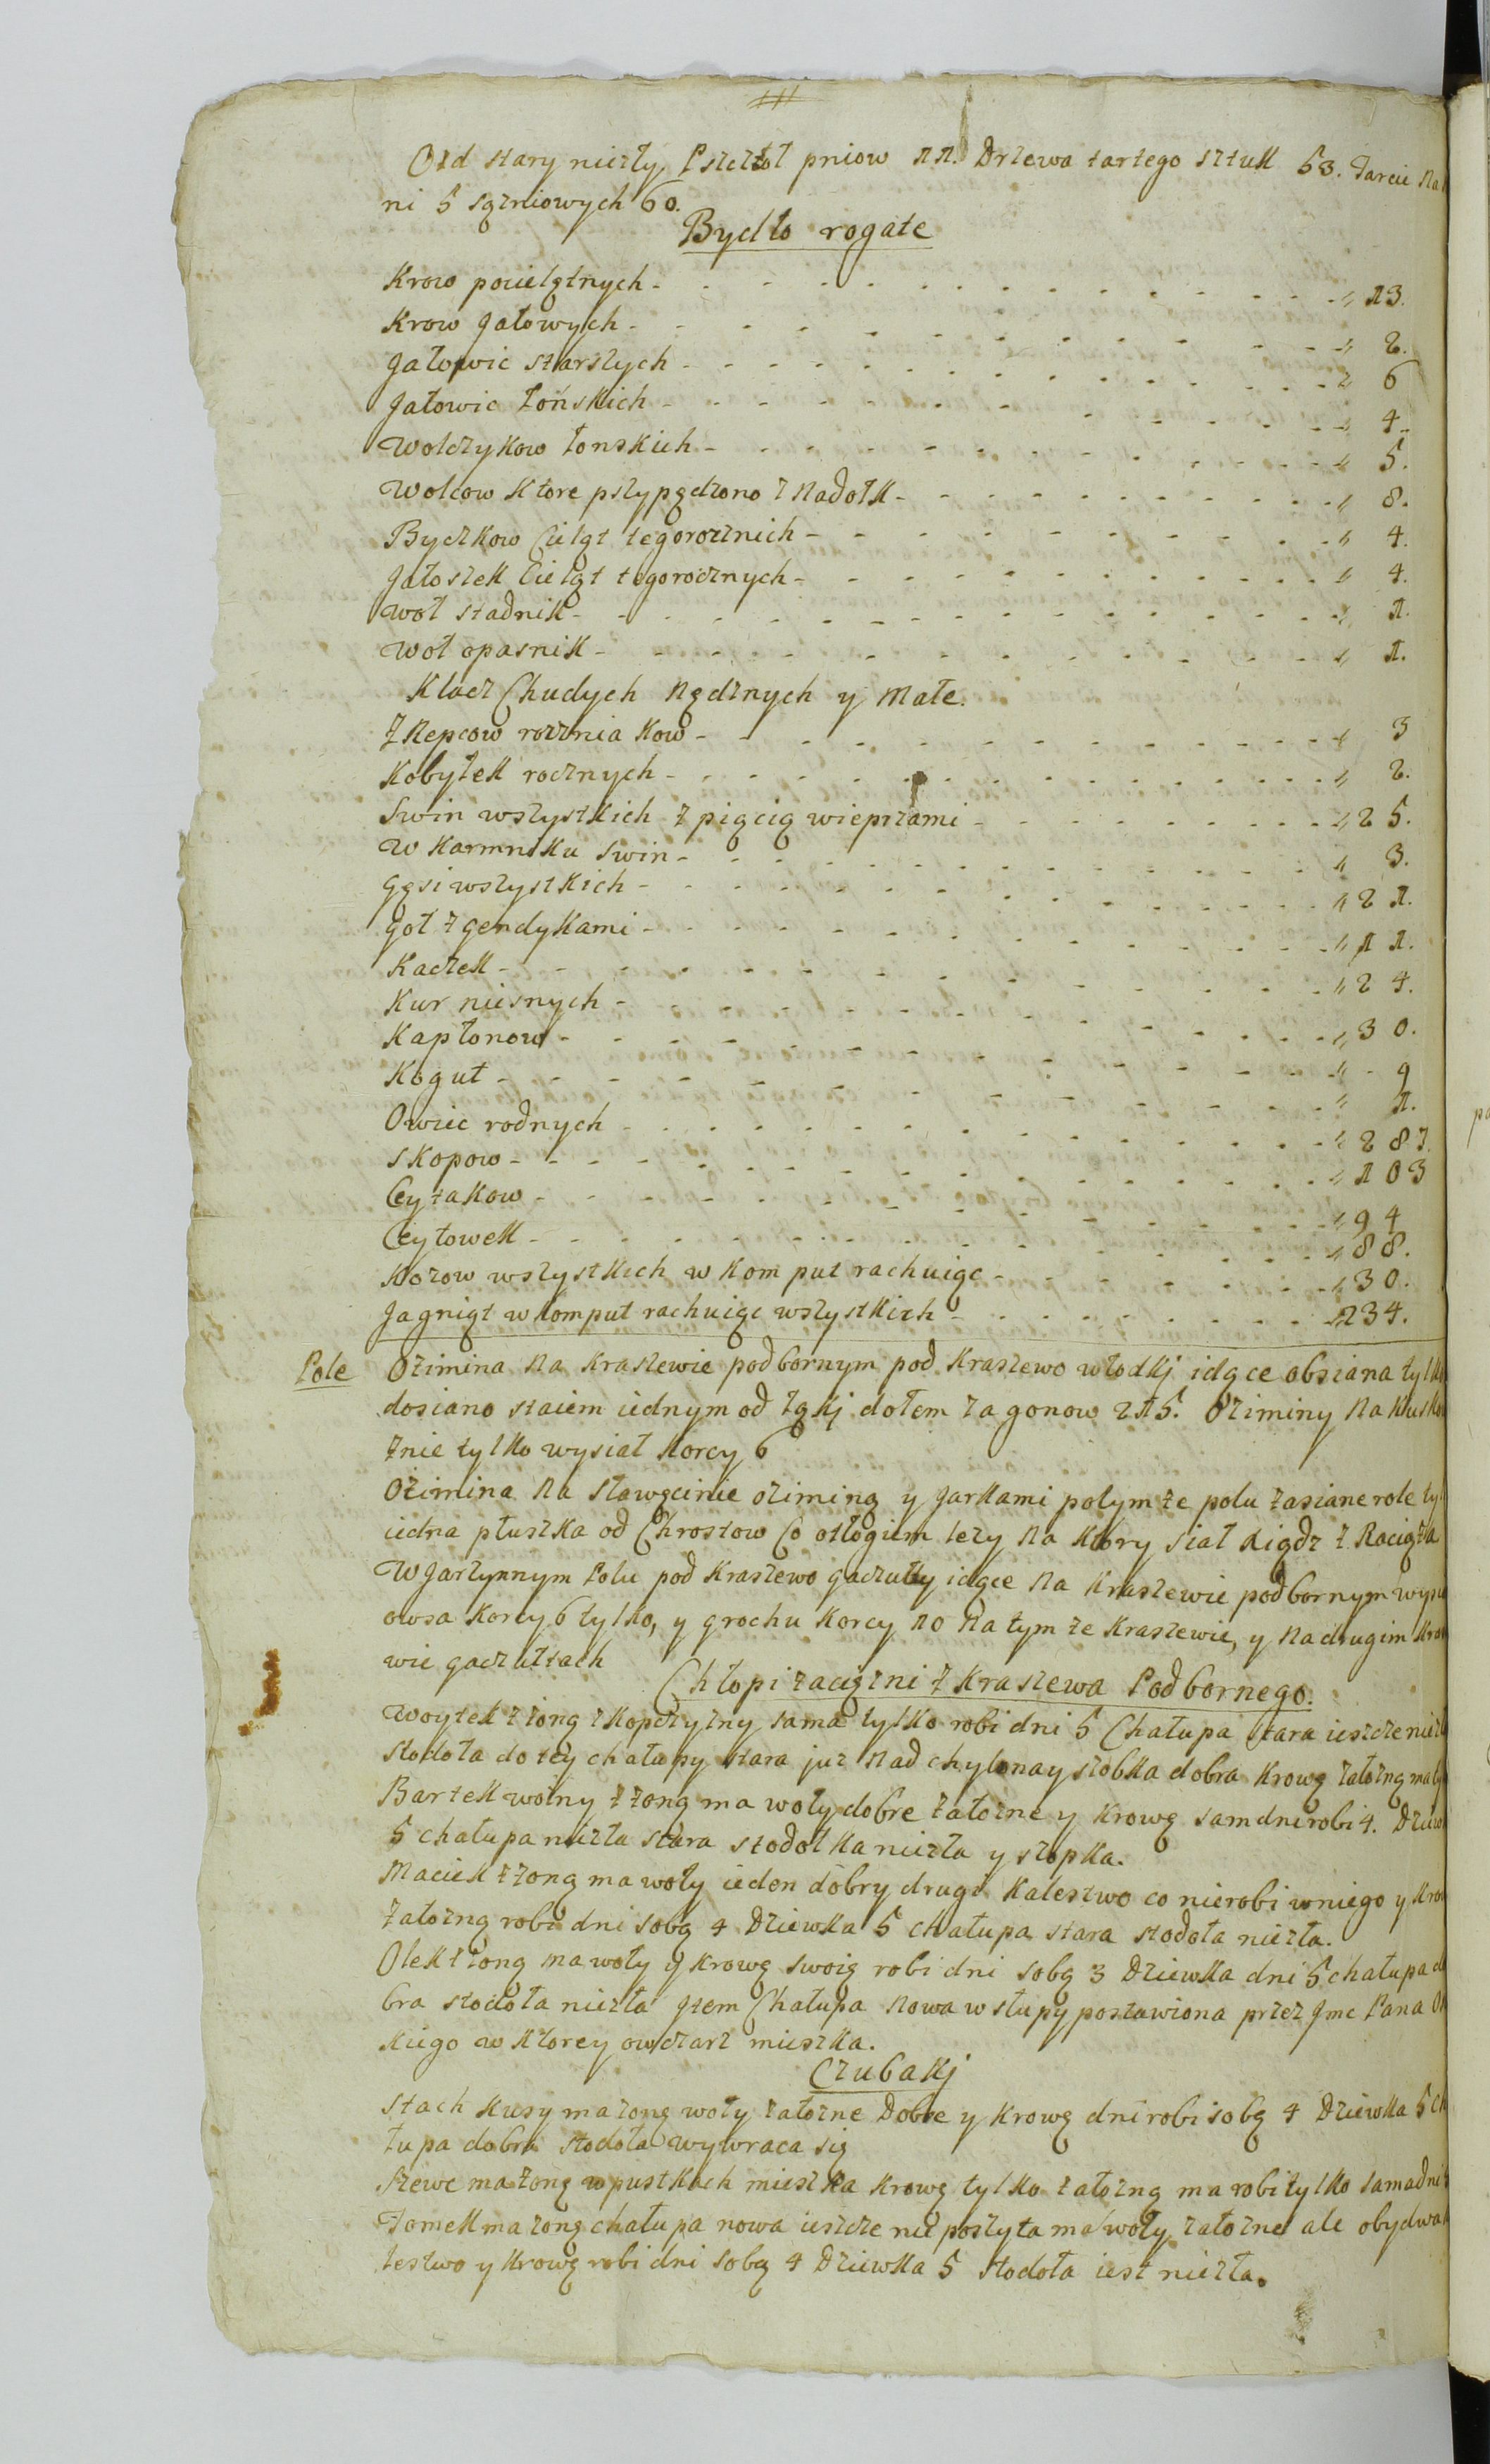 Old stary niezły, Pszczoł pniow 11. Drzewa tartego sztuk 53. Tarcic
ni 5 sązniowych 60.
Bydło rogate
Krow powielątnych - - - „ 13.
Krow Jałowych - - - „ 2.
Jałowic starszych - - - „ 6
Jałowic łońskich - - - „ 4.
Wolczykow łonskich - - - „ 5.
Wolcow ktore przypędzono z Nadołk - - - „ 8.
Byczkow Cieląt tegorocznich - - - „ 4.
Jałoszek Cieląt tegorocznych - - - „ 4.
Woł stadnik - - - „ 1.
Woł opasnik - - - „ 1.
Klacz Chudych Nędznych y Małe.
Zrepcow roczniakow - - - „ 3
Kobyłek rocznych - - - „ 2.
Swin wszystkich z pięcią wieprzami - - - „ 25.
W Karmniku swin - - - „ 3.
Gęsi wszystkich - - - „ 21.
Goł z gendykami - - - „ 11.
Kaczek - - - „ 24.
Kur niesnych - - - „ 30.
Kapłonow - - - „ 9
Kogut - - - „ 1.
Owiec rodnych - - - „ 287.
Skopow - - - „ 103
Cyrakow - - - „ 94
Ceytowek - - - „ 88.
Kozow wszystkich w komput rachuiąc - - - „ 30.
Jagniąt w komput rachuiąc wszystkich - - - „ 234.
Pole Ozimina Na Kraszewie podbornym pod Kraszewo włodkj idące obsiana tylko
dosiano staiem iednym od łąkj dołem zagonow 215. Oziminy Na
znie tylko wysiał korcy 6
Ozimina Na Sławęcinie oziminą y Jarkami połym ze polu zasiane role
iedna płuszka od Chrostow Co odłogiem lezy Na ktory siał Xiądz z Raciąża
W Jarzynnym Polu pod Kraszewo gaczułty idące Na Kraszewie podbornym
owsa korcy 6 tylko, y grochu korcy 10 Na tym ze Kraszewie, y Na drugim
wie gaczułtach
Chłopi zaciężni z Kraszewa Podbornego.
Woytek z zoną zkopczyzny sama tylko robi dni 5 Chałupa stara ieszcze
stodoła do tey chałupy stara juz Nadchylona y stobka dobra Krowę załozną
Bartek wolny z zoną ma woły dobre załozne y Krowę sam dni robi 4.
5 chałupa niezła stara stodołka niezła y stopka.
Maciek z zoną ma woły ieden dobry drugi Kalestwo co nierobi wniego y
załozną robi dni sobą 4 Dziewka 5 chałupa stara stodoła niezła.
Olek z zoną ma woły y krowę swoię robi dni sobą 3 Dziewka dni 5 chałupa
bra stodoła niezła Jtem Chałupa Nowa w słupy postawiona przez Jmc Pana
kiego w ktorey owczarz mieszka.
Czubakj
Stach Kusy ma zonę woły załozne Dobre y Krowę dni robi sobą 4 Dziewka 5
łupa dobra stodoła wywraca się
Szewc ma zonę w pustkach mieszka krowę tylko załozną ma robi tylko sama dni
Tomek ma zonę chałupa nowa ieszcze nie poszyta ma woły załozne ale
lestwo y krowę robi dni sobą 4 Dziewka 5 stodoła iest niezła.